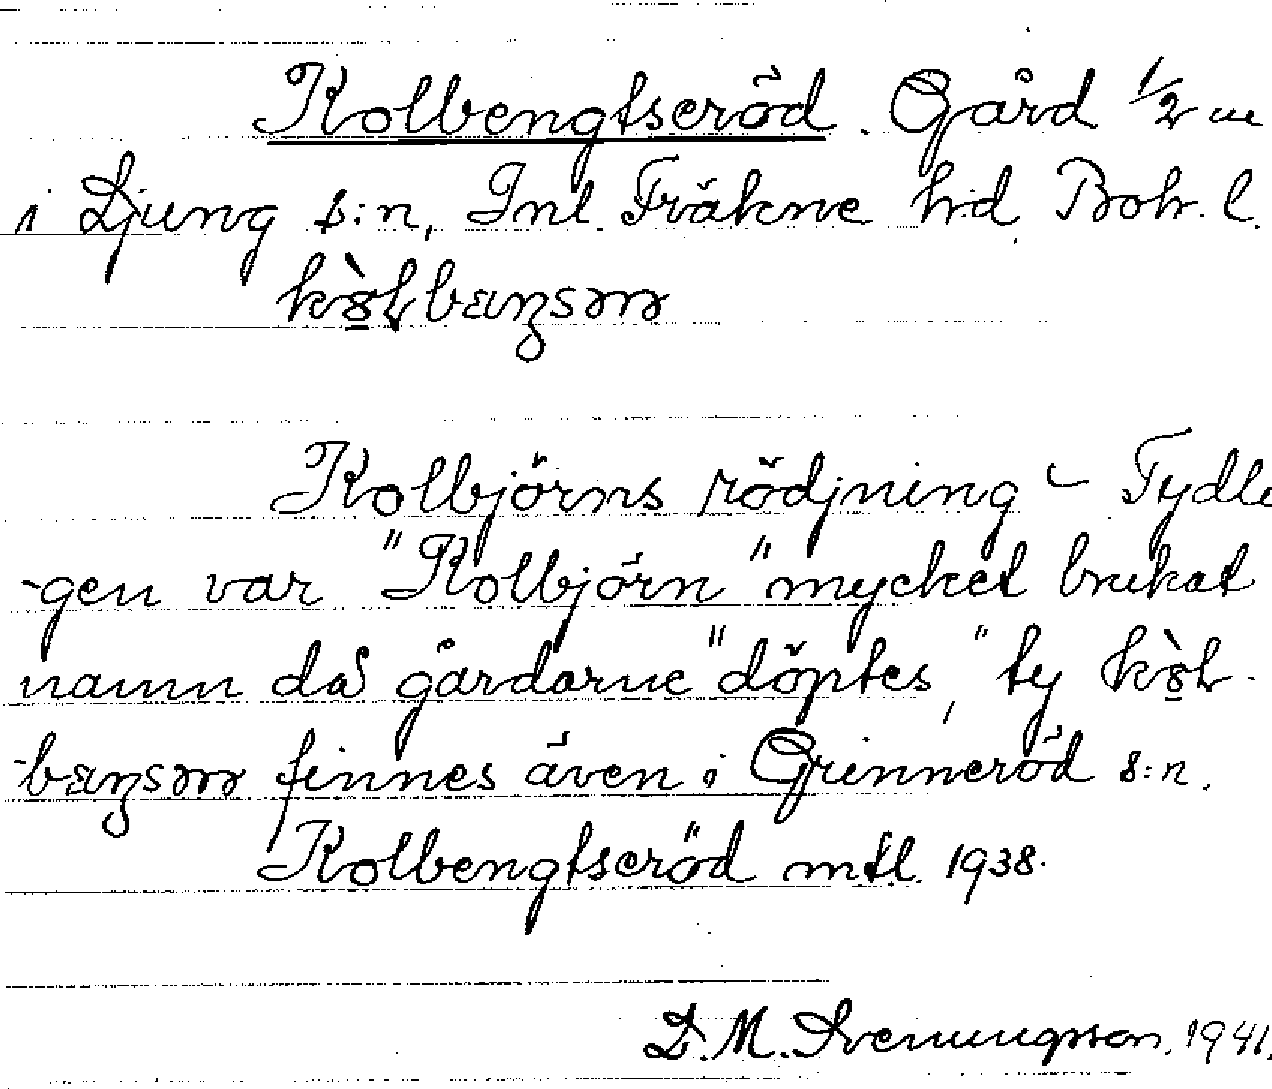 Kolbengtseröd. Gård 1/2 m
i Ljung s:n, Inl. Fräkne h:d, Boh. l.
Kolbjörns rödjning - Tydli
-gen var "Kolbjörn" mycket brukat
namn då gårdarne "döptes," ty
finnes även i Grinneröd s:n.
Kolbengtseröd mtl. 1938.
D. M. Svenungsson. 1941.